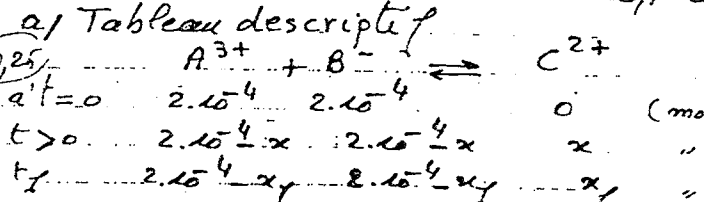 a/ Tableau descriptif
0,25 A³⁺ + B⁻ ⇌ C²⁺
à t=0 2.10⁻⁴ 2.10⁻⁴ 0 (mo
t>0 2.10⁻⁴-x 2.10⁻⁴-x x "
tf 2.10⁻⁴-xf 2.10⁻⁴-xf xf "